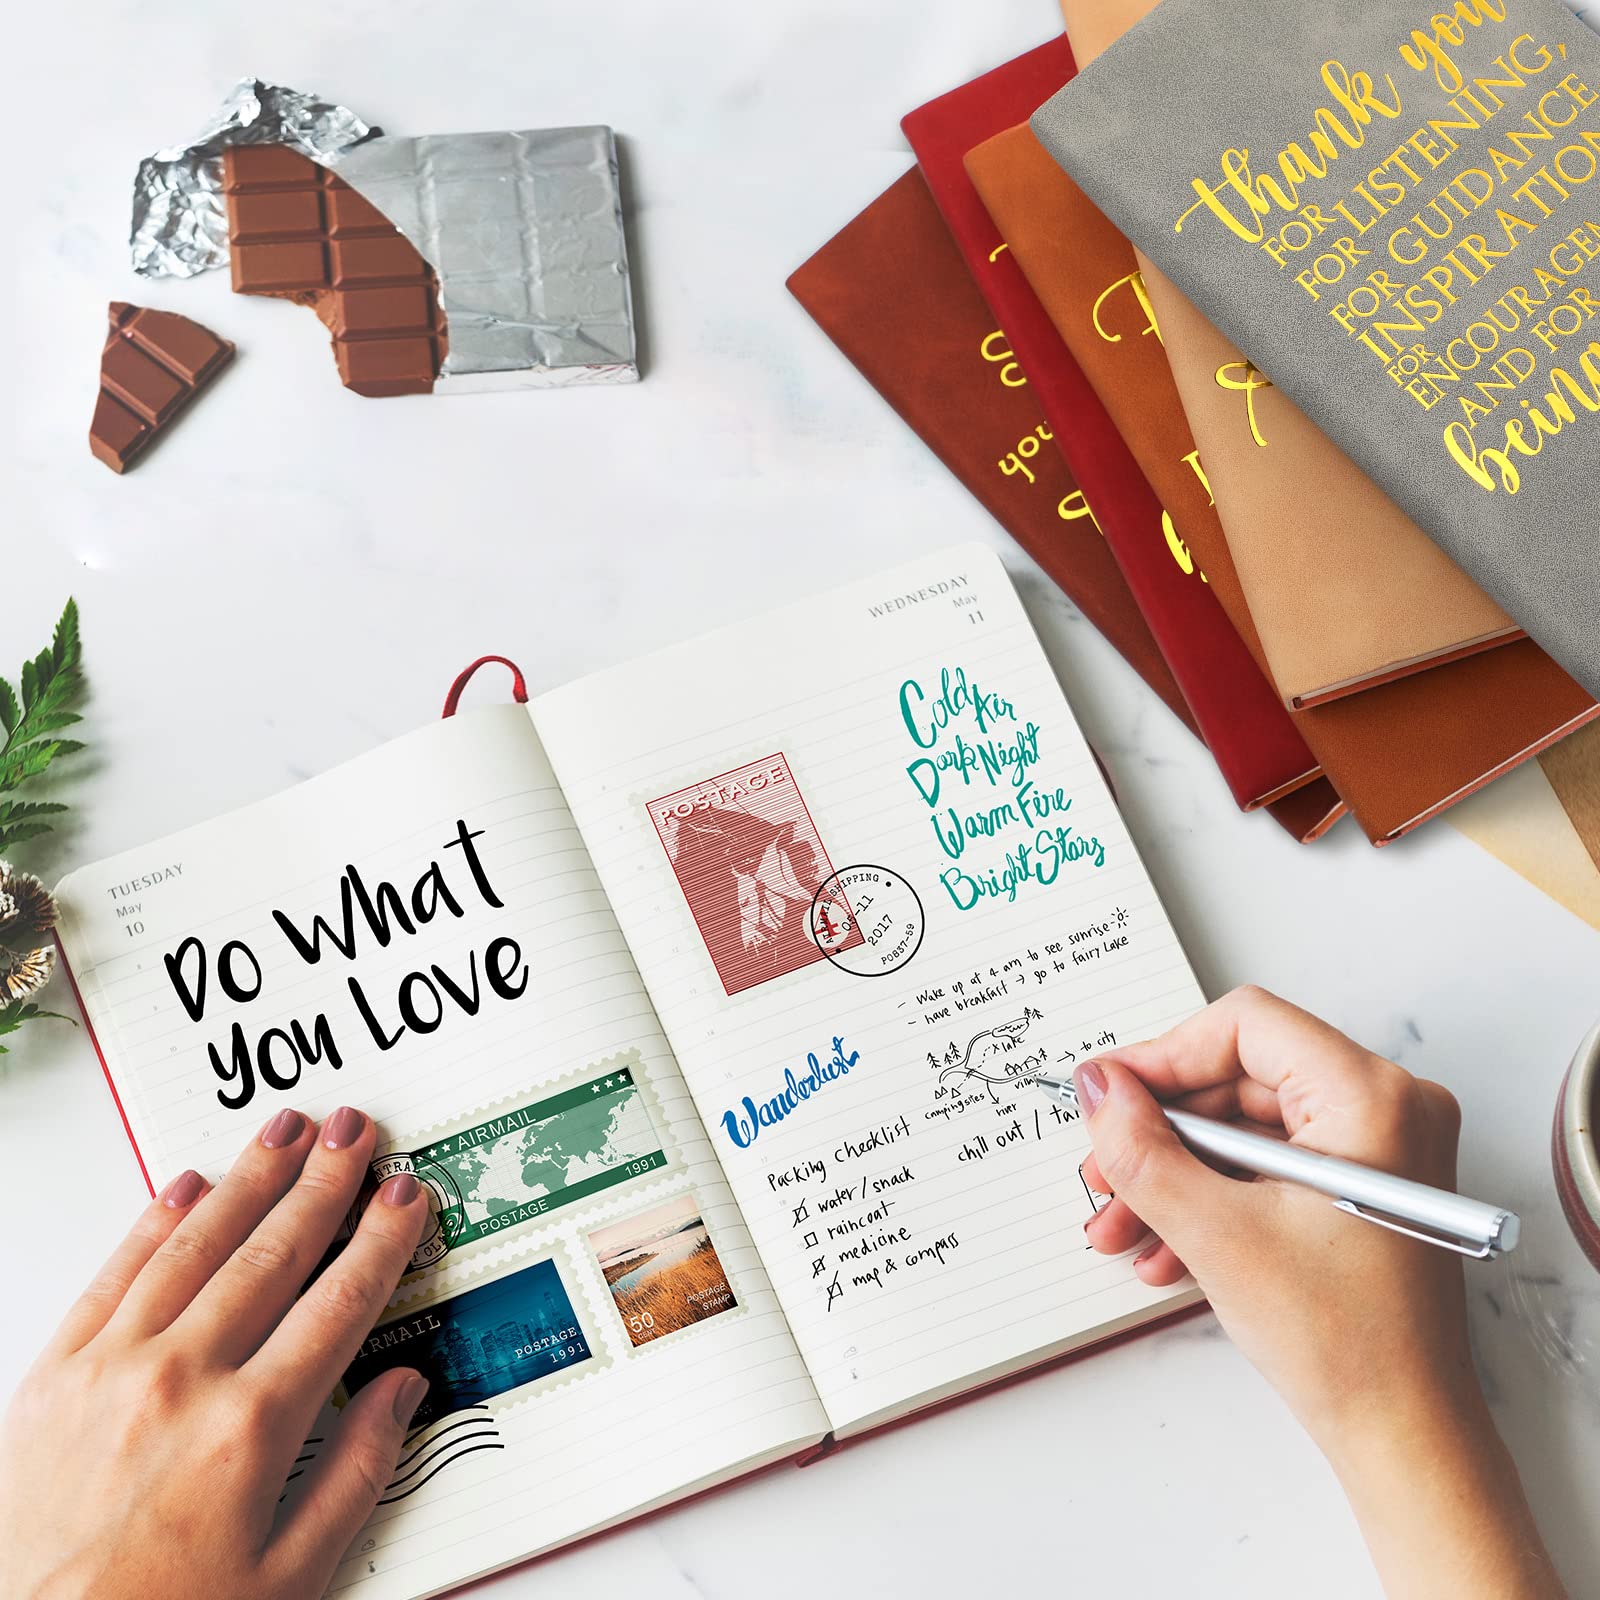 thank you
FOR LISTENING,
FOR GUIDANCE
FOR INSPIRATION
FOR
AND FOR
being
WEDNESDAY
May
11
Cold Air
Dark Night
Warm Fire
Bright Stars
POSTAGE
AIRMAIL SHIPPING
05-11
2017
POB37-59
4
- Wake up at 4 am to see sunrise
- have breakfast → go to fairy Lake
x lake
→ to city
village
camping sites
river
chill out /
Wanderlust
Packing checklist
water / snack
raincoat
medicine
map & compass
TUESDAY
May
10
Do What
You Love
AIRMAIL
1991
POSTAGE
POSTAGE
1991
50
CENT
POSTAGE
STAMP